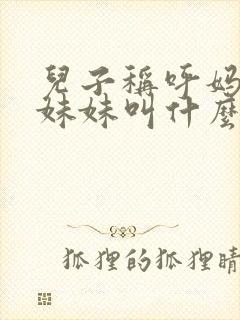 兒子稱呼媽
妹妹叫什麼
狐狸的狐狸晴